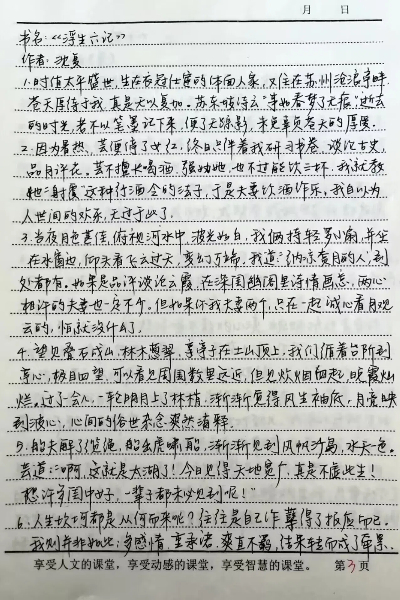 月 日
书名:《浮生六记》
作者:沈复
1.时值太平盛世,生在衣冠仕宦的体面人家,又住在苏州沧浪亭畔
苍天厚待于我,真是无以复加。苏东坡诗云"事如春梦了无痕"逝去
的时光,若不以笔墨记下来,便了无踪影,未免辜负苍天的厚爱。
2.因为暑热,芸便停了女红,终日伴着我研习书卷,谈论古史,
品月评花。芸不擅长喝酒,强劝她,也不过能饮三杯,我就教
她"射覆"这种行酒令的法子,于是夫妻饮酒作乐,我自以为
人世间的欢乐,无过于此了。
3.当夜月色甚佳,俯视河水中,波光如白,我俩持轻罗小扇,并坐
在水窗边,仰头看飞云过天,变幻万端,我道:"纳凉赏月的人,到
处都有。如果是品评谈论云霞,在深闺幽阁里诗情画意,两心
相许的夫妻也一定不少。但如果你我夫妻两个,只在一起诚心看月观
云的,怕就没什么了。
4.望见叠石成山,林木葱翠,亭亭在土山顶上,我们循着台阶到
亭心,极目四望,可以看见周围数里远近,但见炊烟四起,晚霞灿
烂。过了会儿,一轮明月上了林梢,渐渐觉得风生袖底,月亮映
到波心,心间的俗世杂念爽然清释。
5.船夫解了缆绳,船出虎啸桥,渐渐见到风帆沙鸟,水天一色。
芸道:"啊,这就是太湖了!今日见得天地宽广,真是不虚此生!
想许多闺中女子,一辈子都未必见到呢!"
6.人生坎坷都是从何而来呢?往往是自己作孽得了报应而已。
我则并非如此:多感情,重承诺,爽直不羁,结果转而成了牵累。
享受人文的课堂,享受动感的课堂,享受智慧的课堂。 第3页